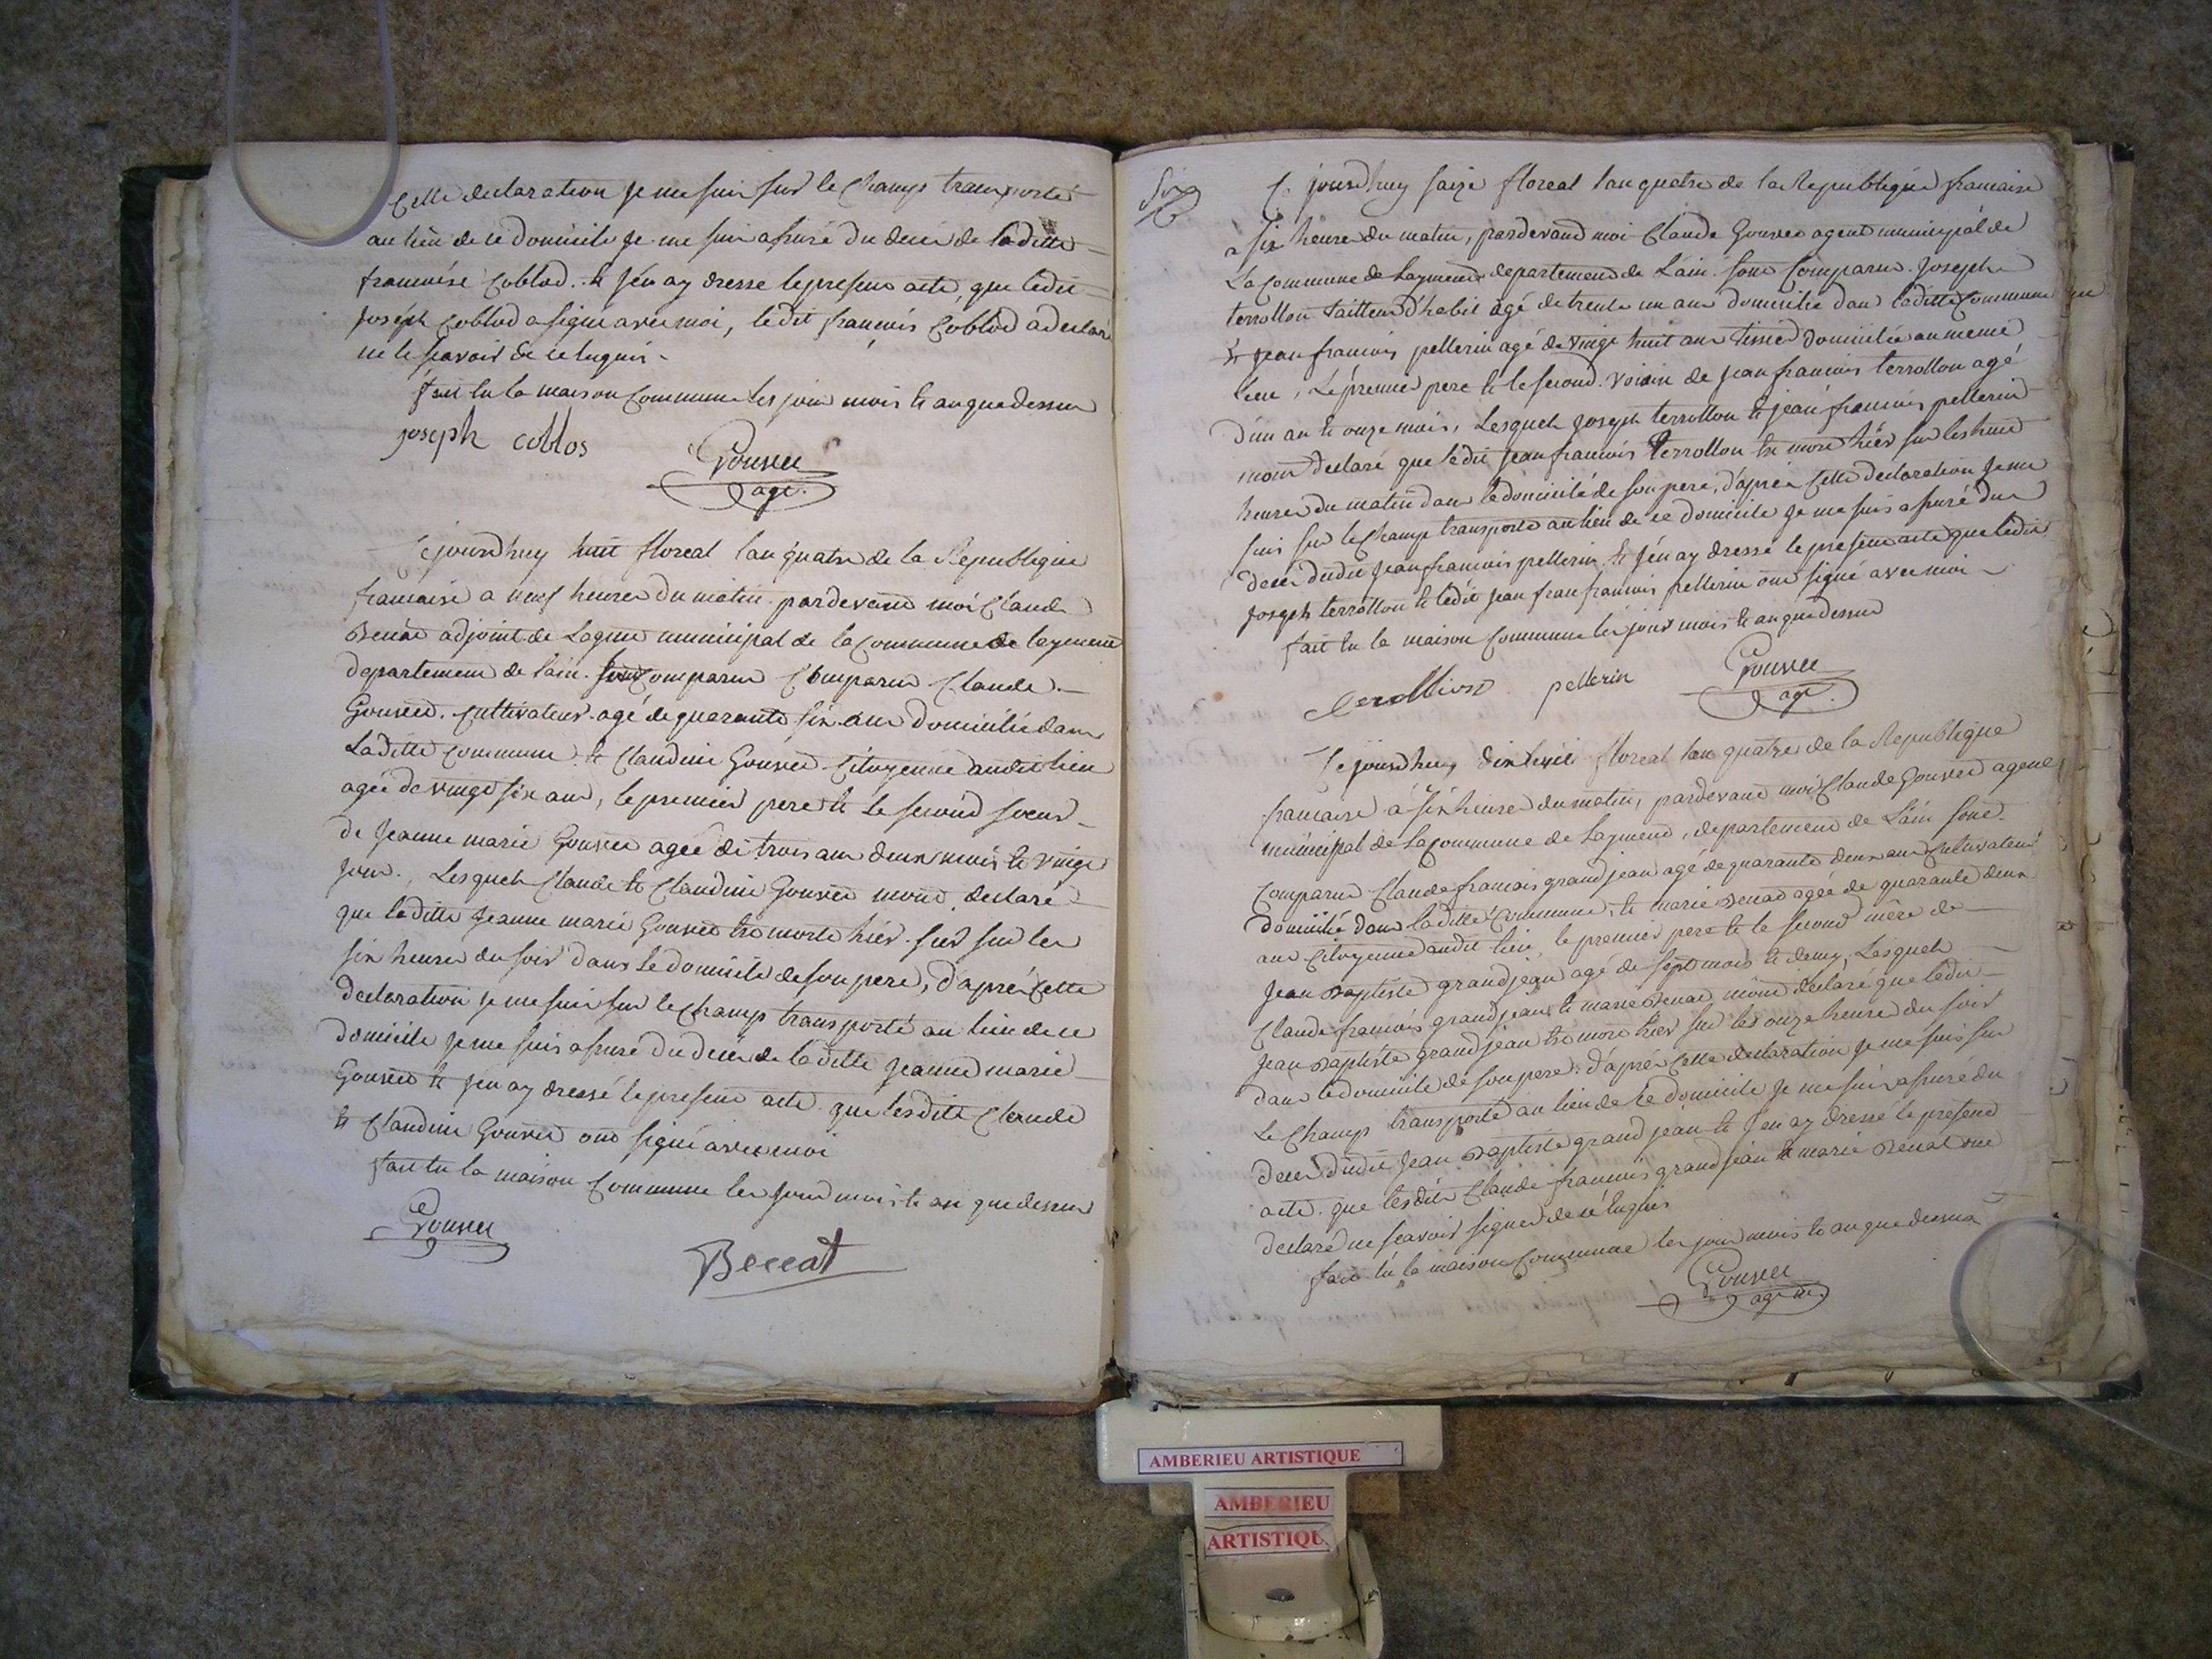 Cette declaration je me suis sur le champs transporté
au lieu de ce domicile je me suis assuré du decés de laditte
francoise Coblod. & j'en ay dressé le present acte, que ledit
joséph Coblod a signé avec moi, ledit francois Coblod a declaré
ne le scavoir de ce enquis.
fait en la maison Commune les jour mois & an que dessus
joseph coblos
Gouvee
age.
Cejourdhuy huit floreal l'an quatre de la Republique
francaise a neuf heures du matin pardevant moi Claude
adjoint de Lagent municipal de la Commune de leyment
departement de lain. Comparus Claude
Gouvee. cultivateur agé de quarante six ans domicilié dans
Laditte commune & Claudine Gouvee Citoyenne audit lieu
agée de vingt six ans, le premier pere & le second soeur
de Jeanne marie Gouvee agée de trois ans deux mois & vingt
jour. Lesquels Claude & Claudine Gouvee mont declaré
que laditte Jeanne marie Gouvee est morte hier sur les
six heures du soir dans le domicile de son pere, d'aprés Cette
declaration je me suis sur le champ transporté au lieu de ce
domicile je me suis assuré du decés de laditte jeanne marie
Gouvee & j'en ay dressé le present acte que lesdits Claude
& Claudine Gouvee ont signé avec moi
fait en la maison Commune les jour mois & an que dessus
Gouvee
Beccat
Six
Ce jourdhuy saize floreal l'an quatre de la Republique francaise
a six heures du matin, pardevant moi Claude Gouvee agent municipal de
La Commune de Layment departement de Lain. sont Comparus. joseph
terrollon tailleur d'habit agé de trente un ans domicilié dans laditte Commune
& jean francois pellerin agé de vingt huit ans tissier domicilié au meme
lieu, Le premier pere & le second voisin de jean francois terrollon agé
d'un an & onze mois, Lesquels joseph terrollon & jean francois pellerin
mont declaré que ledit jean francois terrollon est mort hier sur les huit
heures du matin dans le domicile de son pere, d'aprés Cette declaration je me
suis sur le champ transporté au lieu de ce domicile je me suis assuré du
decés dudit jean francois pellerin & j'en ay dressé le present acte que ledit
joseph terrollon & ledit jean fran francois pellerin ont signé avec moi
fait en la maison Commune les jour mois & an que dessus
terollion pellerin
Gouvee
age.
Ce jourdhuy dix huit floreal lan quatre de la Republique
francaise à six heures du matin, pardevant moi Claude Gouvee agent
municipal de La Commune de Layment, departement de Lain sont
Comparus Claude francois grandjean agé de quarante deux ans cultivateur
domicilié dans laditte Commune, & marie agée de quarante deux
ans Citoyenne audit lieu, le premier pere & le second mère de
Jean Baptiste grandjean agé de sept mois & demy, Lesquels
Claude francois grandjean & marie mont déclaré que ledit
Jean Baptiste grandjean est mort hier sur les onze heures du soir
dans le domicile de son pere. d'aprés Cette declaration je me suis sur
Le champ transporté au lieu de ce domicile je me suis assuré du
decés dudit Jean Baptiste grandjean & j'en ay dressé le present
acte que lesdits Claude francois grandjean & marie ont
declaré ne scavoir signer de ce enquis
fait en la maison Commune les jour mois & an que dessus
Gouvee
AMBERIEU ARTISTIQUE
AMBERIEU
ARTISTIQU